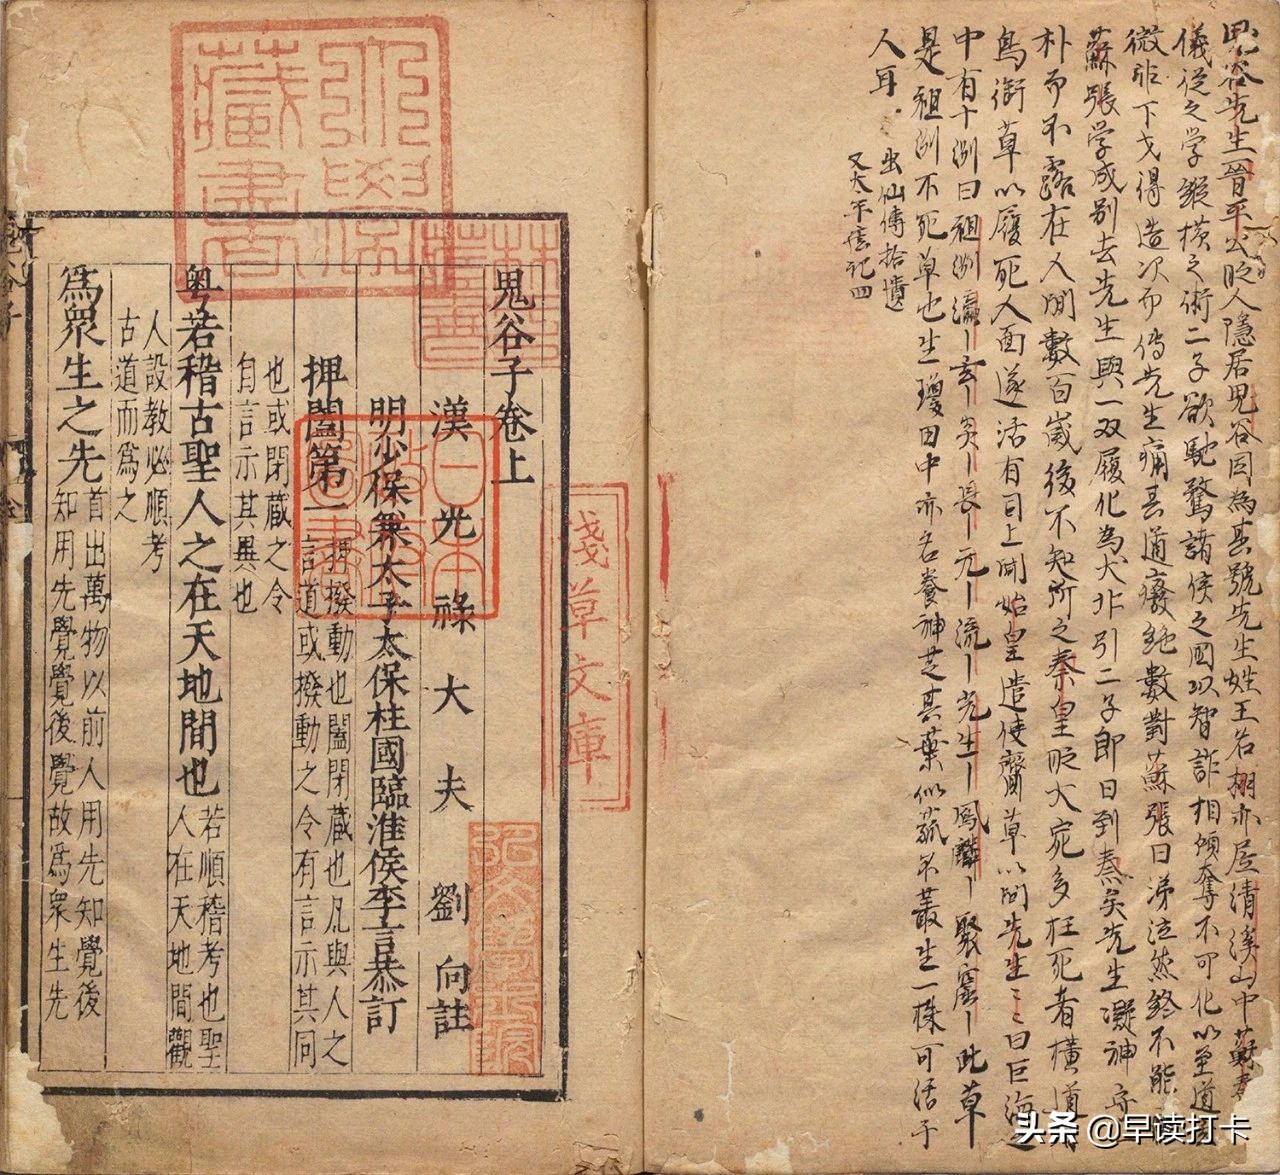 鬼谷先生晉平公時人隱居鬼谷因為其號先生姓王名栩亦居清溪山中蘇秦張
儀從之学縱橫之術二子欲馳騖諸侯之国以智詐相傾奪不可化以至道
微非下才得造次而傳先生痛其道廢絶數對蘇張曰涕泣然終不能
蘇張学成别去先生與一双履化為犬北引二子即日到秦矣先生凝神守
朴而不露在人間數百歲後不知所之秦皇時大宛多枉死者橫道
鳥銜草以履死人面遂活有司上聞始皇遣使齎草以問先生〻曰巨海
中有十洲曰祖洲瀛丨玄丨炎丨長丨元丨流丨光生丨鳳麟丨聚窟丨此草
是祖洲不死草也生瓊田中亦名養神芝其葉似菰不叢生一株可活千
人耳
出仙傳拾遺
又太平廣記四
鬼谷子卷上
漢光祿大夫劉向註
明少保兼太子太保柱國臨淮侯李言恭訂
捭闔第一
捭撥動也闔閉藏也凡與人之
言道或撥動之令有言示其同
也或閉藏之令
自言示其異也
粤若稽古聖人之在天地間也
若順稽考也聖
人在天地間觀
人設教必順考
古道而為之
為眾生之先
首出萬物以前人用先知覺後
知用先覺覺後覺故為眾生先
弘學
藏書
淺草文庫
頭条 @早读打卡